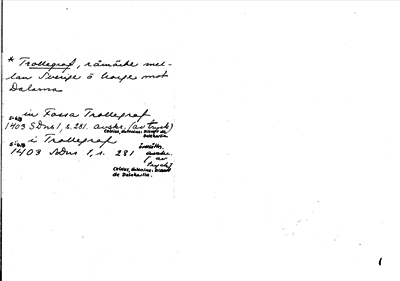 * Trollegraf, råmärke mel-
lan Sverige o Norge mot
Dalarna
in Fossa Trollegraf
1403 SDns 1, s. 281. avskr. (av tryck)
Celsius, Antonius: Dissert de
Dalekarlia
i Trollegraf
1403 SDns 1, s. 281 avskr.
(av
tryck)
Celsius, Antonius: Dissert
de Dalekarlia.